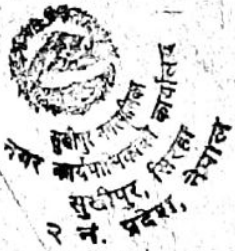 सुखीपुर नगरपालिका
नगर कार्यपालिकाको कार्यालय
सुखीपुर, सिरहा
२ नं. प्रदेश, नेपाल